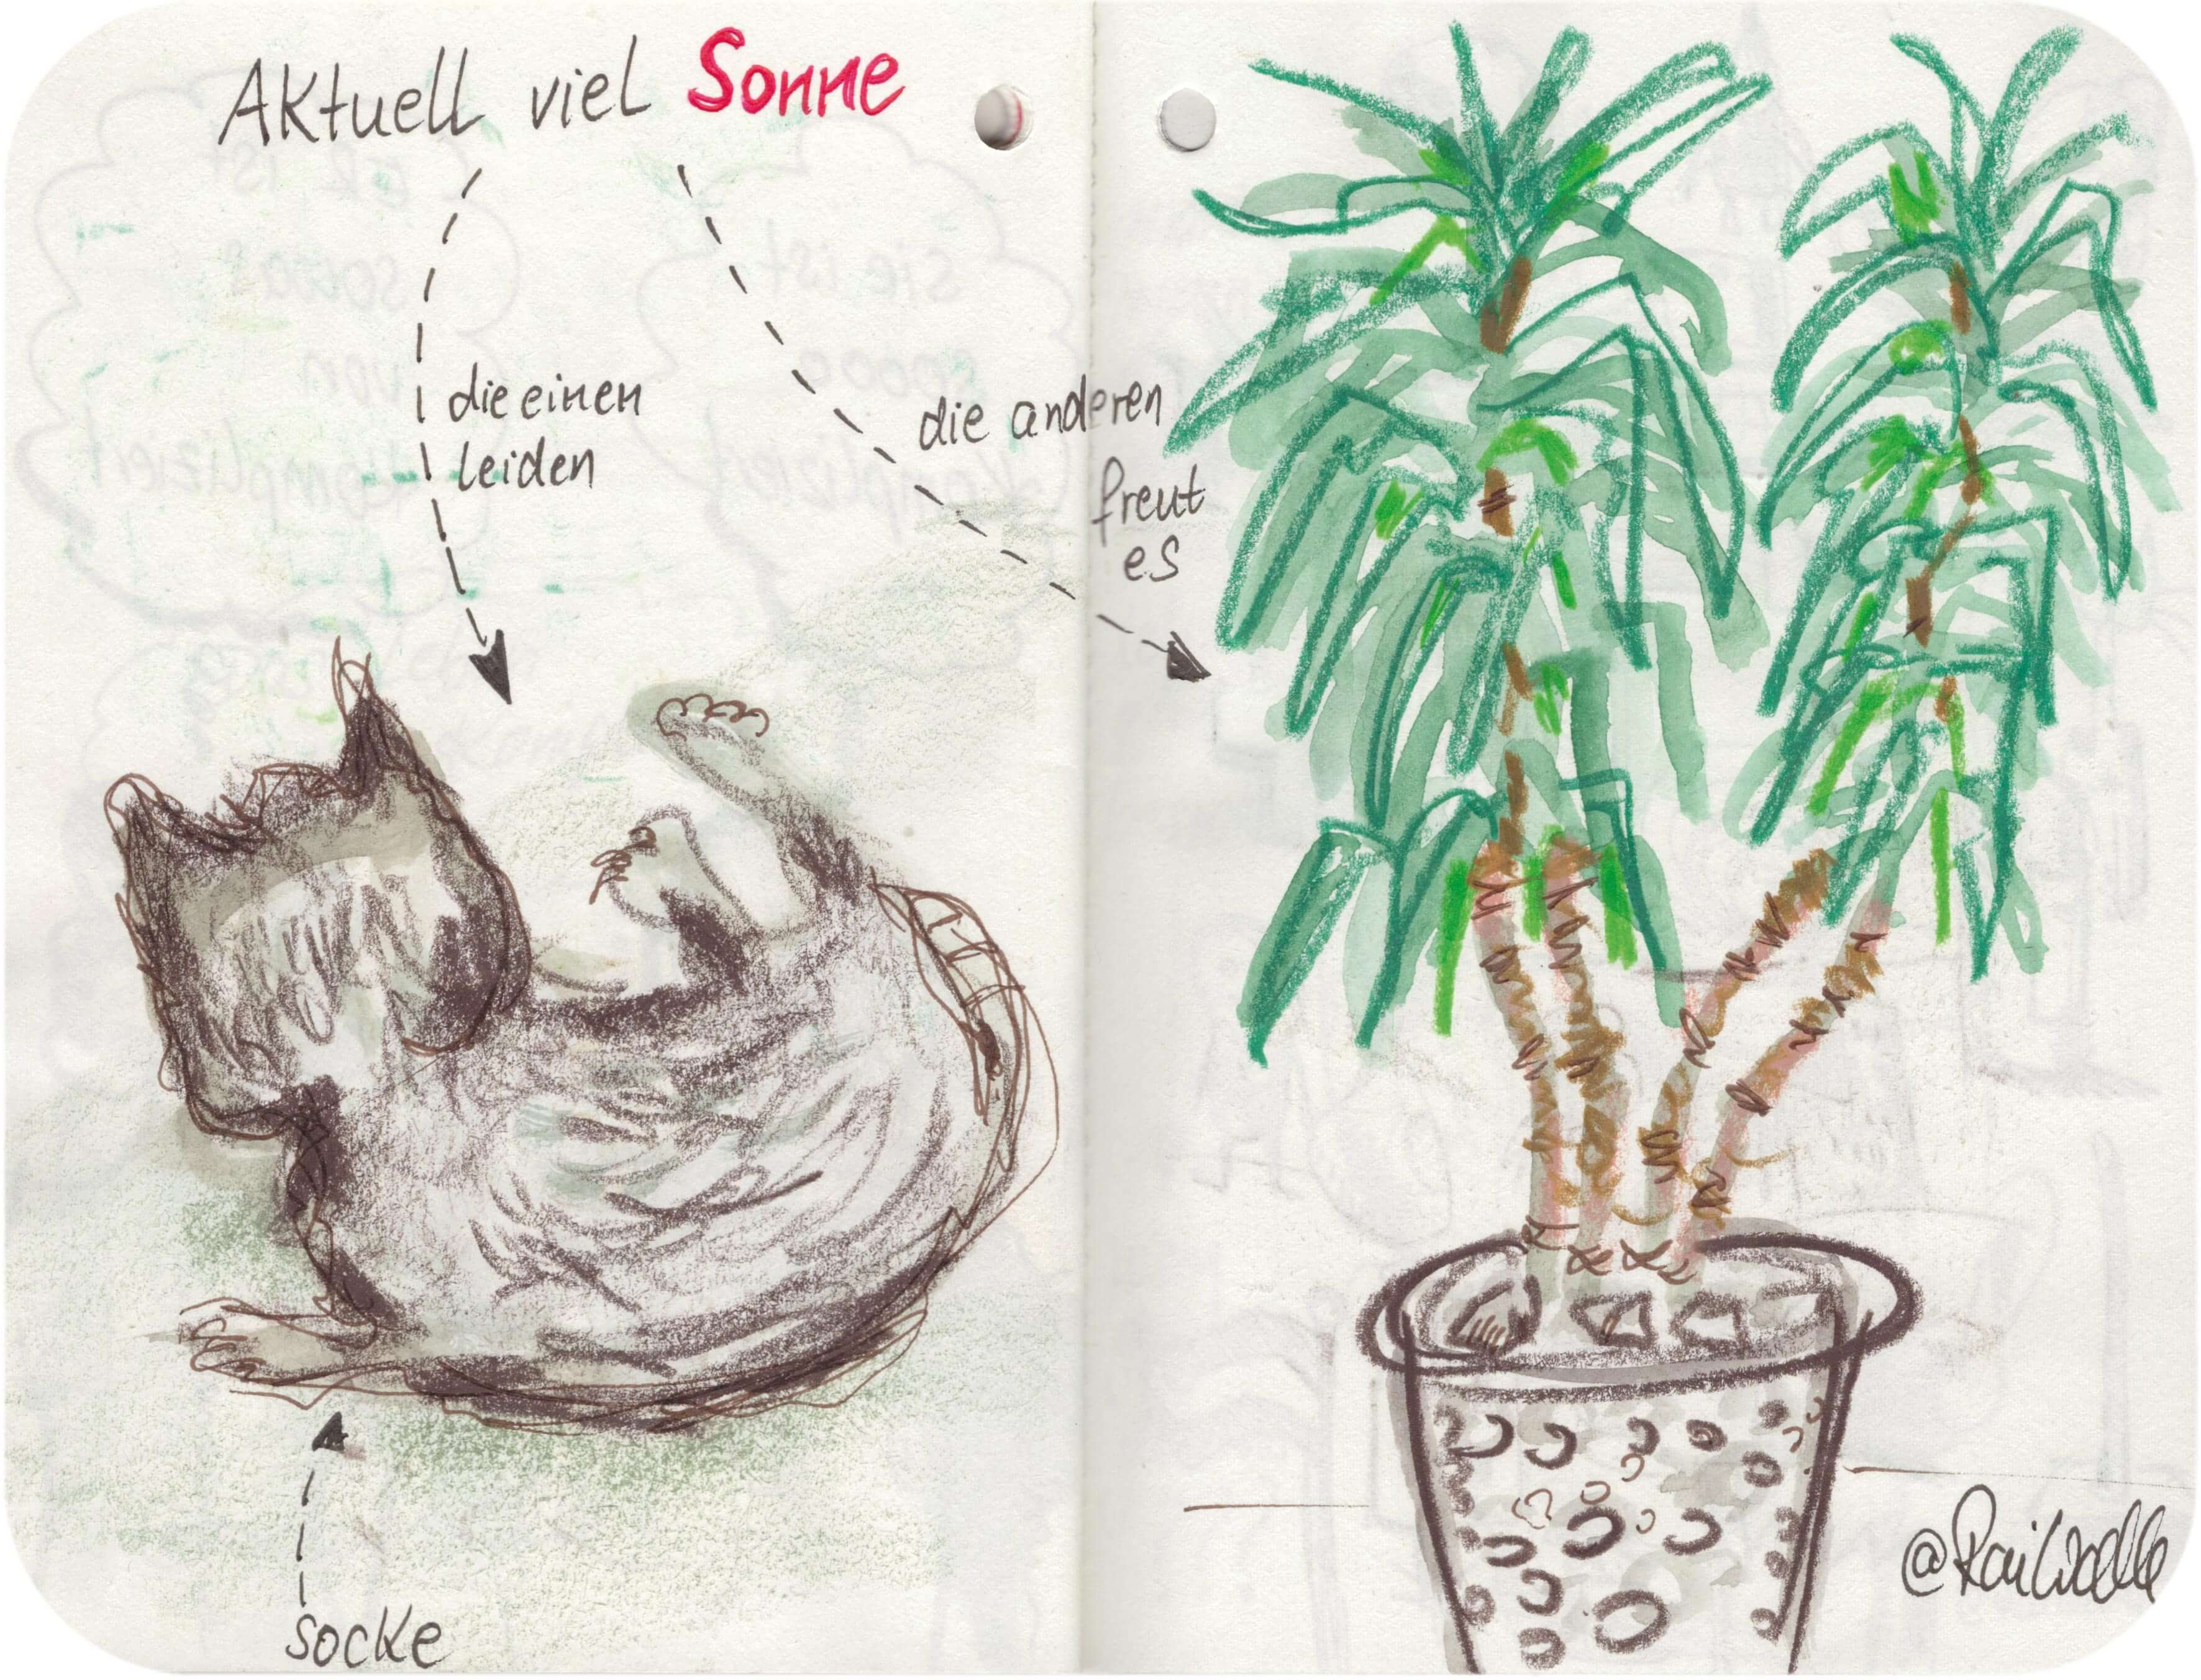 Aktuell viel Sonne
die einen
leiden
die anderen
freut
es
socke